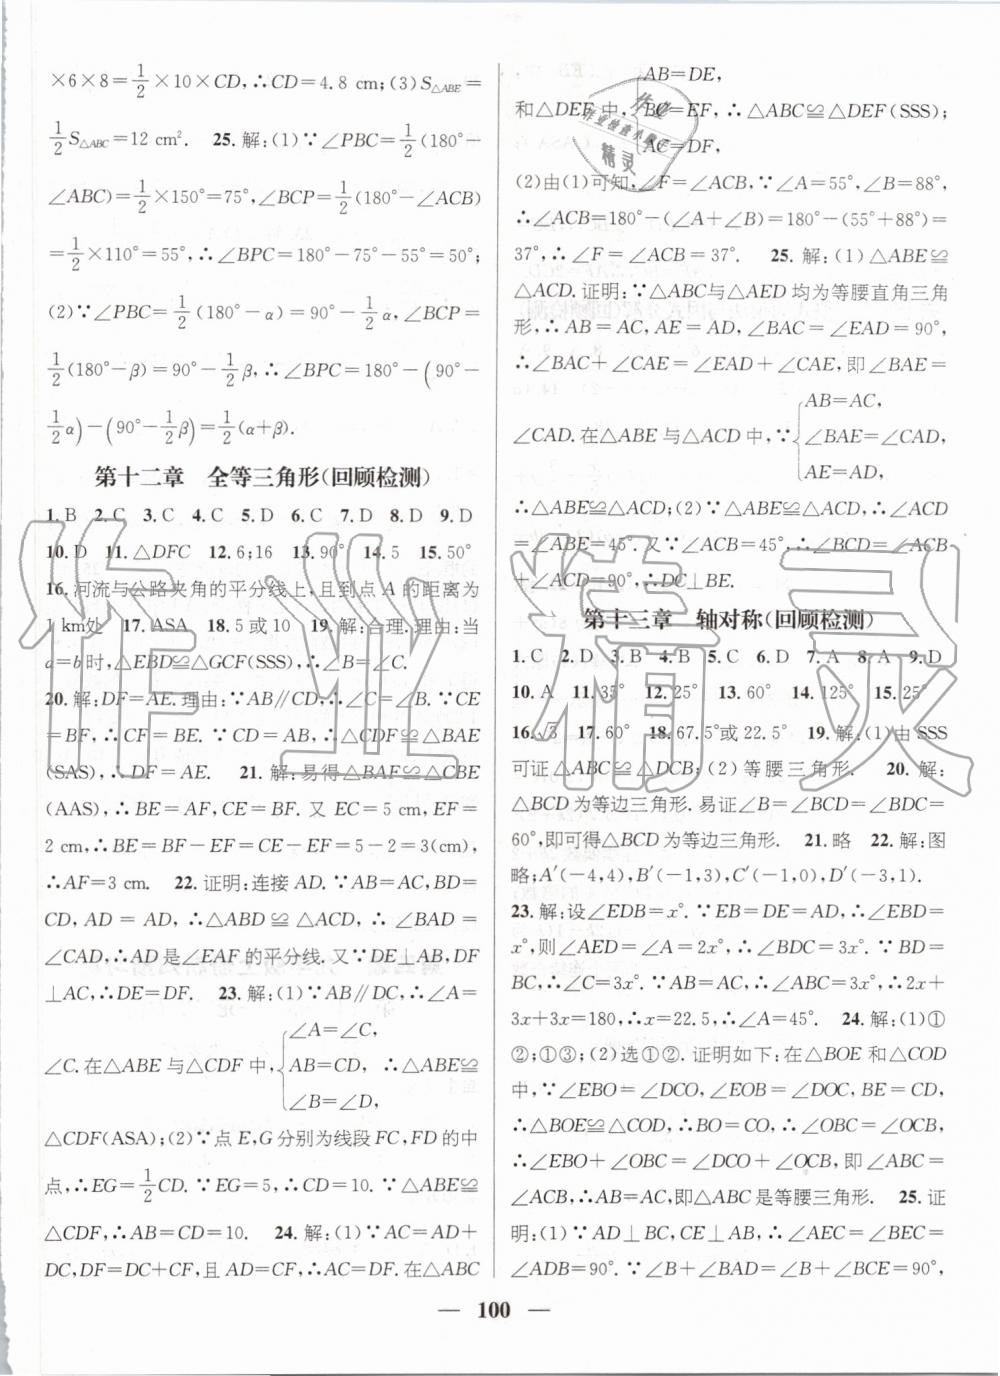 ×6×8=1/2×10×CD,∴CD=4.8 cm;(3)S△ABE=
1/2S△ABC=12 cm². 25. 解:(1)∵∠PBC=1/2(180°-
∠ABC)=1/2×150°=75°,∠BCP=1/2(180°-∠ACB)
=1/2×110°=55°,∴∠BPC=180°-75°-55°=50°;
(2)∵∠PBC=1/2(180°-α)=90°-1/2α,∠BCP=
1/2(180°-β)=90°-1/2β,∴∠BPC=180°-(90°-
1/2α)-(90°-1/2β)=1/2(α+β).
第十二章 全等三角形(回顾检测)
1. B 2. C 3. C 4. C 5. D 6. C 7. D 8. D 9. D
10. D 11. △DFC 12. 6;16 13. 90° 14. 5 15. 50°
16. 河流与公路夹角的平分线上,且到点 A 的距离为
1 km处 17. ASA 18. 5或10 19. 解:合理.理由:当
a=b时,△EBD≌△GCF(SSS),∴∠B=∠C.
20. 解:DF=AE.理由:∵AB∥CD,∴∠C=∠B.∵CE
=BF,∴CF=BE.∵CD=AB,∴△CDF≌△BAE
(SAS),∴DF=AE. 21. 解:易得△BAF≌△CBE
(AAS),∴BE=AF,CE=BF.又EC=5 cm,EF=
2 cm,∴BE=BF-EF=CE-EF=5-2=3(cm),
∴AF=3 cm. 22. 证明:连接AD.∵AB=AC,BD=
CD,AD=AD,∴△ABD≌△ACD,∴∠BAD=
∠CAD,∴AD是∠EAF的平分线.又∵DE⊥AB,DF
⊥AC,∴DE=DF. 23. 解:(1)∵AB∥DC,∴∠A=
∠C.在△ABE与△CDF中,{∠A=∠C,
AB=CD, ∴△ABE≌
∠B=∠D,
△CDF(ASA);(2)∵点E,G分别为线段FC,FD的中
点,∴EG=1/2CD.∵EG=5,∴CD=10.∵△ABE≌
△CDF,∴AB=CD=10. 24. 解:(1)∵AC=AD+
DC,DF=DC+CF,且AD=CF,∴AC=DF.在△ABC
AB=DE,
和△DEF中,{BC=EF,∴△ABC≌△DEF(SSS);
AC=DF,
(2)由(1)可知,∠F=∠ACB,∵∠A=55°,∠B=88°,
∴∠ACB=180°-(∠A+∠B)=180°-(55°+88°)=
37°,∴∠F=∠ACB=37°. 25. 解:(1)△ABE≌
△ACD.证明:∵△ABC与△AED均为等腰直角三角
形,∴AB=AC,AE=AD,∠BAC=∠EAD=90°,
∴∠BAC+∠CAE=∠EAD+∠CAE,即∠BAE=
AB=AC,
∠CAD.在△ABE与△ACD中,∵{∠BAE=∠CAD,
AE=AD,
∴△ABE≌△ACD;(2)∵△ABE≌△ACD,∴∠ACD
=∠ABE=45°.又∵∠ACB=45°,∴∠BCD=∠ACB+
∠ACD=90°,∴DC⊥BE.
第十三章 轴对称(回顾检测)
1. C 2. D 3. B 4. B 5. C 6. D 7. A 8. A 9. D
10. A 11. 35° 12. 25° 13. 60° 14. 125° 15. 25°
16. √3 17. 60° 18. 67.5°或22.5° 19. 解:(1)由SSS
可证△ABC≌△DCB;(2)等腰三角形. 20. 解:
△BCD为等边三角形.易证∠B=∠BCD=∠BDC=
60°,即可得△BCD为等边三角形. 21. 略 22. 解:图
略;A′(-4,4),B′(-1,3),C′(-1,0),D′(-3,1).
23. 解:设∠EDB=x°.∵EB=DE=AD,∴∠EBD=
x°,则∠AED=∠A=2x°,∴∠BDC=3x°.∵BD=
BC,∴∠C=3x°.∵AB=AC,∴∠ABC=3x°,∴2x+
3x+3x=180,∴x=22.5,∴∠A=45°. 24. 解:(1)①
②;①③;(2)选①②.证明如下:在△BOE和△COD
中,∵∠EBO=∠DCO,∠EOB=∠DOC,BE=CD,
∴△BOE≌△COD,∴BO=CO,∴∠OBC=∠OCB,
∴∠EBO+∠OBC=∠DCO+∠OCB,即∠ABC=
∠ACB,∴AB=AC,即△ABC是等腰三角形. 25. 证
明:(1)∵AD⊥BC,CE⊥AB,∴∠AEC=∠BEC=
∠ADB=90°.∵∠B+∠BAD=∠B+∠BCE=90°,
— 100 —
作业精灵
精灵